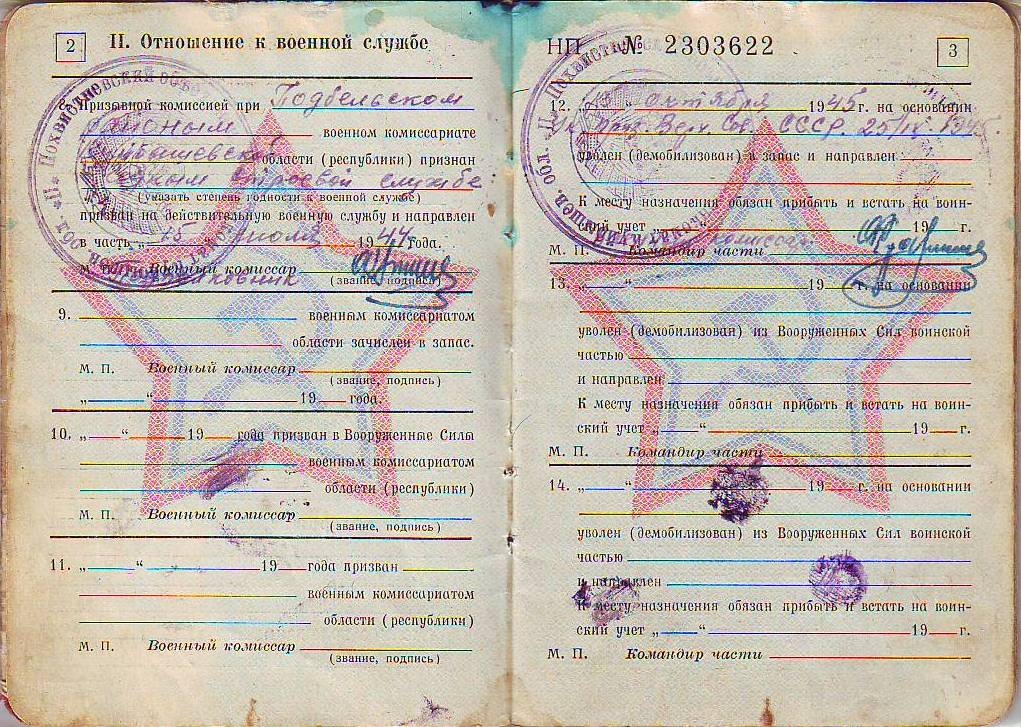 2
II. Отношение к военной службе
8. Призывной комиссией при Подбельском
районым военном комиссариате
Куйбышевской области (республики) признан
годным строевой службе
(указать степень годности к военной службе)
призван на действительную военную службу и направлен
в часть „15 июля 1944 года.
М. П. Военный комиссар
Подполковник (звание, подпись)
9. военным комиссариатом
области зачислен в запас.
М. П. Военный комиссар
(звание, подпись)
„ “ 19 года.
10. „ “ 19 года призван в Вооруженные Силы
военным комиссариатом
области (республики)
М. П. Военный комиссар
(звание, подпись)
11. „ “ 19 года призван
военным комиссариатом
области (республики)
М. П. Военный комиссар
(звание, подпись)
НП № 2303622
3
12. „ “ октября 1945 г. на основании
Ук. През. Верх. Сов. СССР. 25/IX 1945г.
уволен (демобилизован) в запас и направлен
К месту назначения обязан прибыть и встать на воин-
ский учет „ “ 19 г.
М. П. Командир части
13. „ “ 19 г. на основании
уволен (демобилизован) из Вооруженных Сил воинской
частью
и направлен
К месту назначения обязан прибыть и встать на воин-
ский учет „ “ 19 г.
М. П. Командир части
14. „ “ 19 г. на основании
уволен (демобилизован) из Вооруженных Сил воинской
частью
и направлен
К месту назначения обязан прибыть и встать на воин-
ский учет „ “ 19 г.
М. П. Командир части